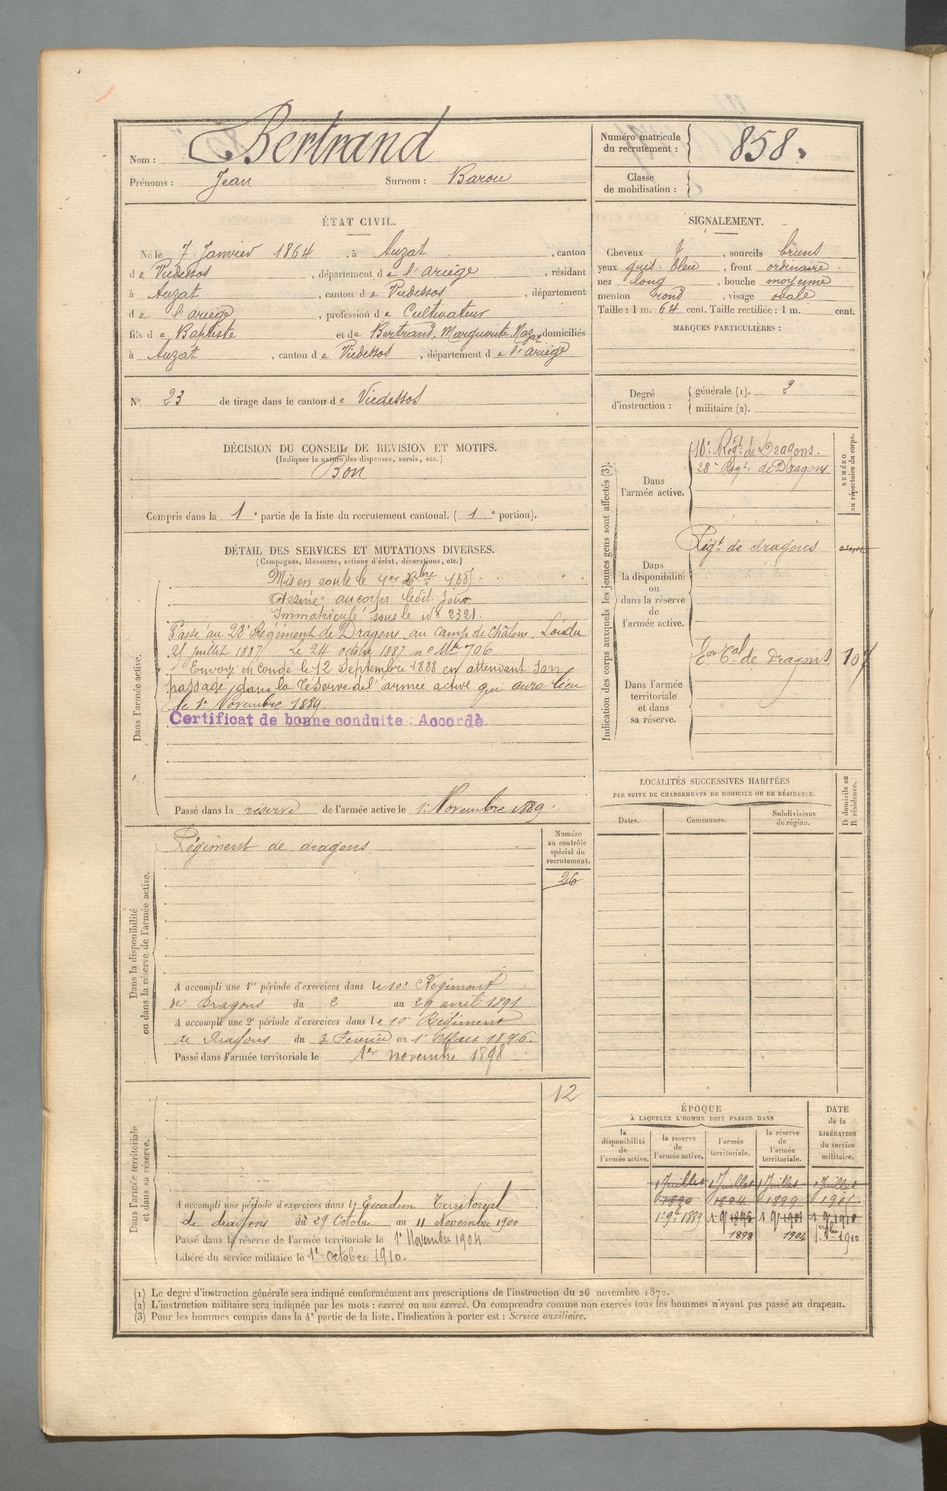 Nom : Bertrand
Prénoms : Jean Surnom : Barou
Numéro matricule du recrutement : 858.
Classe de mobilisation :
ÉTAT CIVIL.
Né le 7 Janvier 1864, à Auzat, canton
de Vicdessos, département de l'ariège, résidant
à Auzat, canton de Vicdessos, département
de l'ariège, profession de Cultivateur
fils de Baptiste et de Bertrand, Marguerite domiciliés
à Auzat, canton de Vicdessos, département de l'ariège
SIGNALEMENT.
Cheveux, sourcils bruns
yeux gris-bleu, front ordinaire
nez long, bouche moyenne
menton rond, visage ovale
Taille : 1 m. 64 cent. Taille rectifiée : 1 m. cent.
MARQUES PARTICULIÈRES :
N° 23 de tirage dans le canton de Vicdessos
Degré d'instruction : générale (1). 2
militaire (2).
DÉCISION DU CONSEIL DE REVISION ET MOTIFS.
(Indiquer la nature des dispenses, sursis, etc.)
Bon
Compris dans la 1e partie de la liste du recrutement cantonal. ( 1e portion).
DÉTAIL DES SERVICES ET MUTATIONS DIVERSES.
(Campagnes, blessures, actions d'éclat, décorations, etc.)
Dans l'armée active.
Mis en route le 1er Xbre 1885
au corps le dit jour
Immatriculé sous le n° 2321.
Passé au 28e Régiment de Dragons, au camp de Châlons,
21 juillet 1887 Le 24 octobre 1887 n° Mle 706
Envoyé en congé le 12 Septembre 1888 en attendant son
passage dans la réserve de l'armée active qui aura lieu
le 1er Novembre 1889.
Certificat de bonne conduite : Accordé
Passé dans la réserve de l'armée active le 1er Novembre 1889.
Indication des corps auxquels les jeunes gens sont affectés (3).
NUMÉRO au répertoire du corps.
Dans l'armée active.
10e Régt de Dragons.
28e Régt de Dragons
Dans la disponibilité ou dans la réserve de l'armée active.
Régt de dragons
Dans l'armée territoriale et dans sa réserve.
Eon Tal de Dragons 107
LOCALITÉS SUCCESSIVES HABITÉES
PAR SUITE DE CHANGEMENTS DE DOMICILE OU DE RÉSIDENCE.
D domicile ou R résidence.
Dates. Communes. Subdivisions de région.
Dans la disponibilité ou dans la réserve de l'armée active.
Numéro au contrôle spécial du recrutement.
Régiment de dragons
26
A accompli une 1re période d'exercices dans le 10e Régiment
de Dragons du 2 au 29 avril 1891
A accompli une 2e période d'exercices dans le 10e Régiment
de Dragons du 3 Février au 1er Mars 1896.
Passé dans l'armée territoriale le 1er novembre 1898
Dans l'armée territoriale et dans sa réserve.
12
A accompli une période d'exercices dans l' Escadron Territorial
de dragons du 29 Octobre au 11 Novembre 1900
Passé dans la réserve de l'armée territoriale le 1er Novembre 1904
Libéré du service militaire le 1er octobre 1910.
ÉPOQUE
À LAQUELLE L'HOMME DOIT PASSER DANS
DATE de la LIBÉRATION du service militaire.
la disponibilité de l'armée active. la réserve de l'armée active. l'armée territoriale. la réserve de l'armée territoriale.
1 Juillet 1 Juillet 1 Juillet 1 Juillet
1890 1894 1899
1er 9bre 1889
1898 1904
(1) Le degré d'instruction générale sera indiqué conformément aux prescriptions de l'instruction du 26 novembre 1872.
(2) L'instruction militaire sera indiquée par les mots : exercé ou non exercé. On comprendra comme non exercés tous les hommes n'ayant pas passé au drapeau.
(3) Pour les hommes compris dans la 4e partie de la liste, l'indication à porter est : Service auxiliaire.